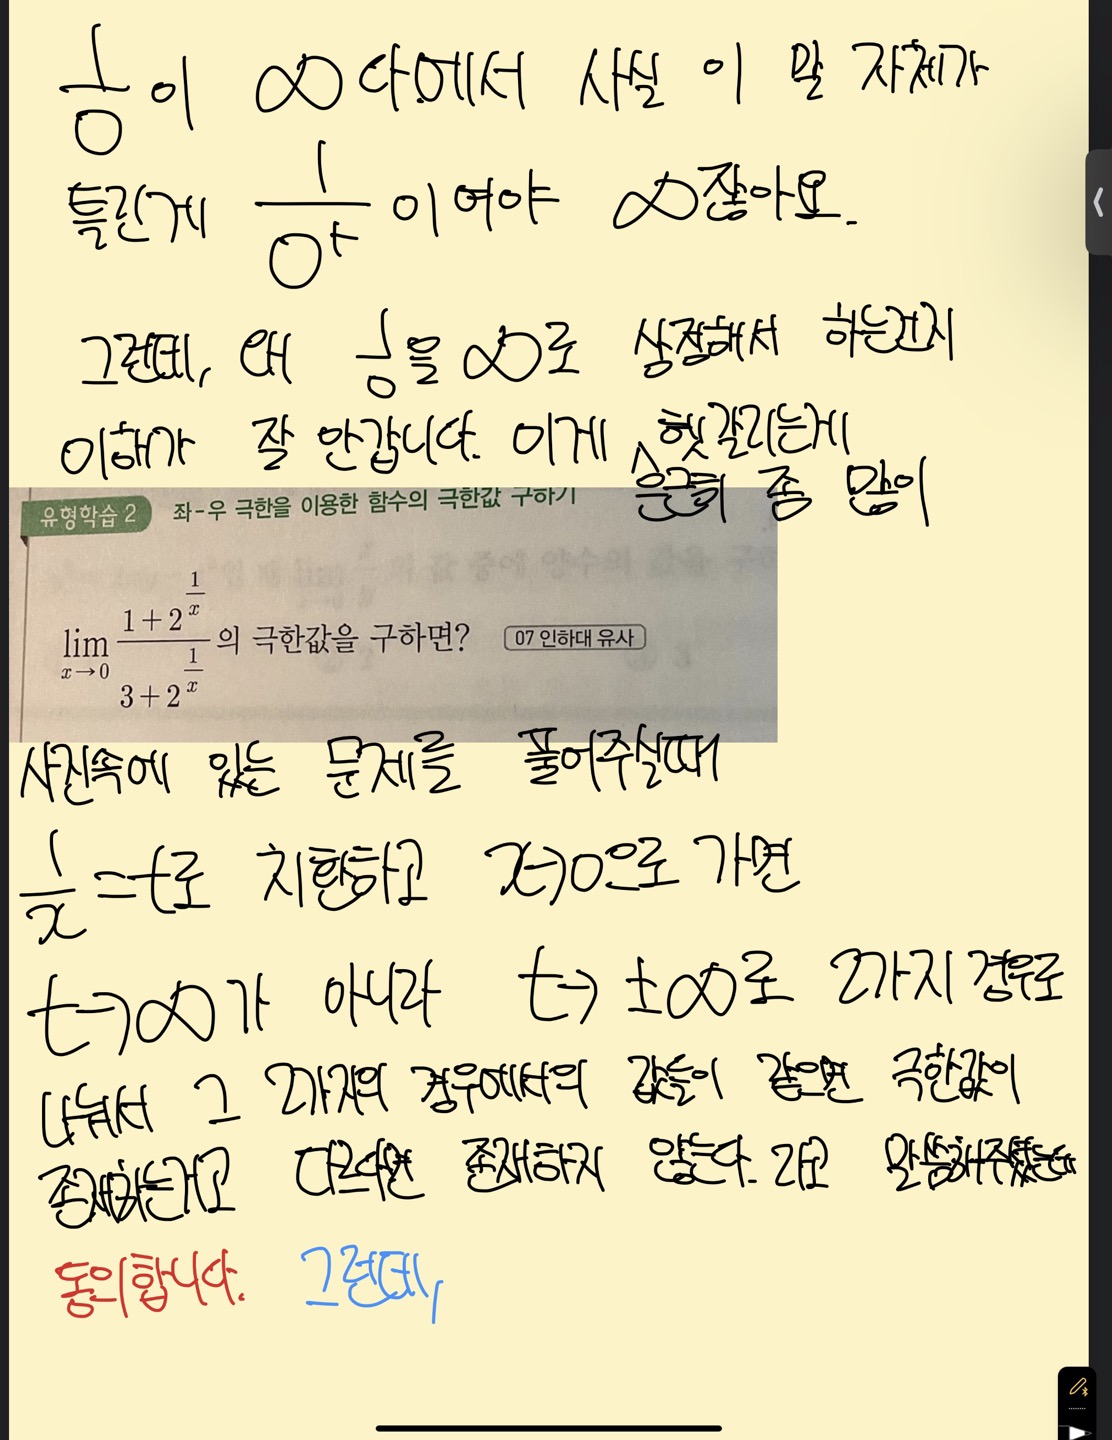 1/0이 ∞다에서 사실 이 말 자체가
틀린게 1/0⁺ 이여야 ∞잖아요.
그런데, 왜 1/0을 ∞로 상정해서 하는건지
이해가 잘 안갑니다. 이게 헷갈리는게
은근히 좀 많이
유형학습 2 좌-우 극한을 이용한 함수의 극한값 구하기
lim_{x→0} (1+2^{1/x})/(3+2^{1/x}) 의 극한값을 구하면? 07 인하대 유사
사진속에 있는 문제를 풀어주실때
1/x =t로 치환하고 x→0으로 가면
t→∞가 아니라 t→ ±∞로 2가지 경우로
나눠서 그 2가지의 경우에서의 값들이 같으면 극한값이
존재하는거고 다르다면 존재하지 않는다. 라고 말씀해주셨는데
동의합니다. 그런데,